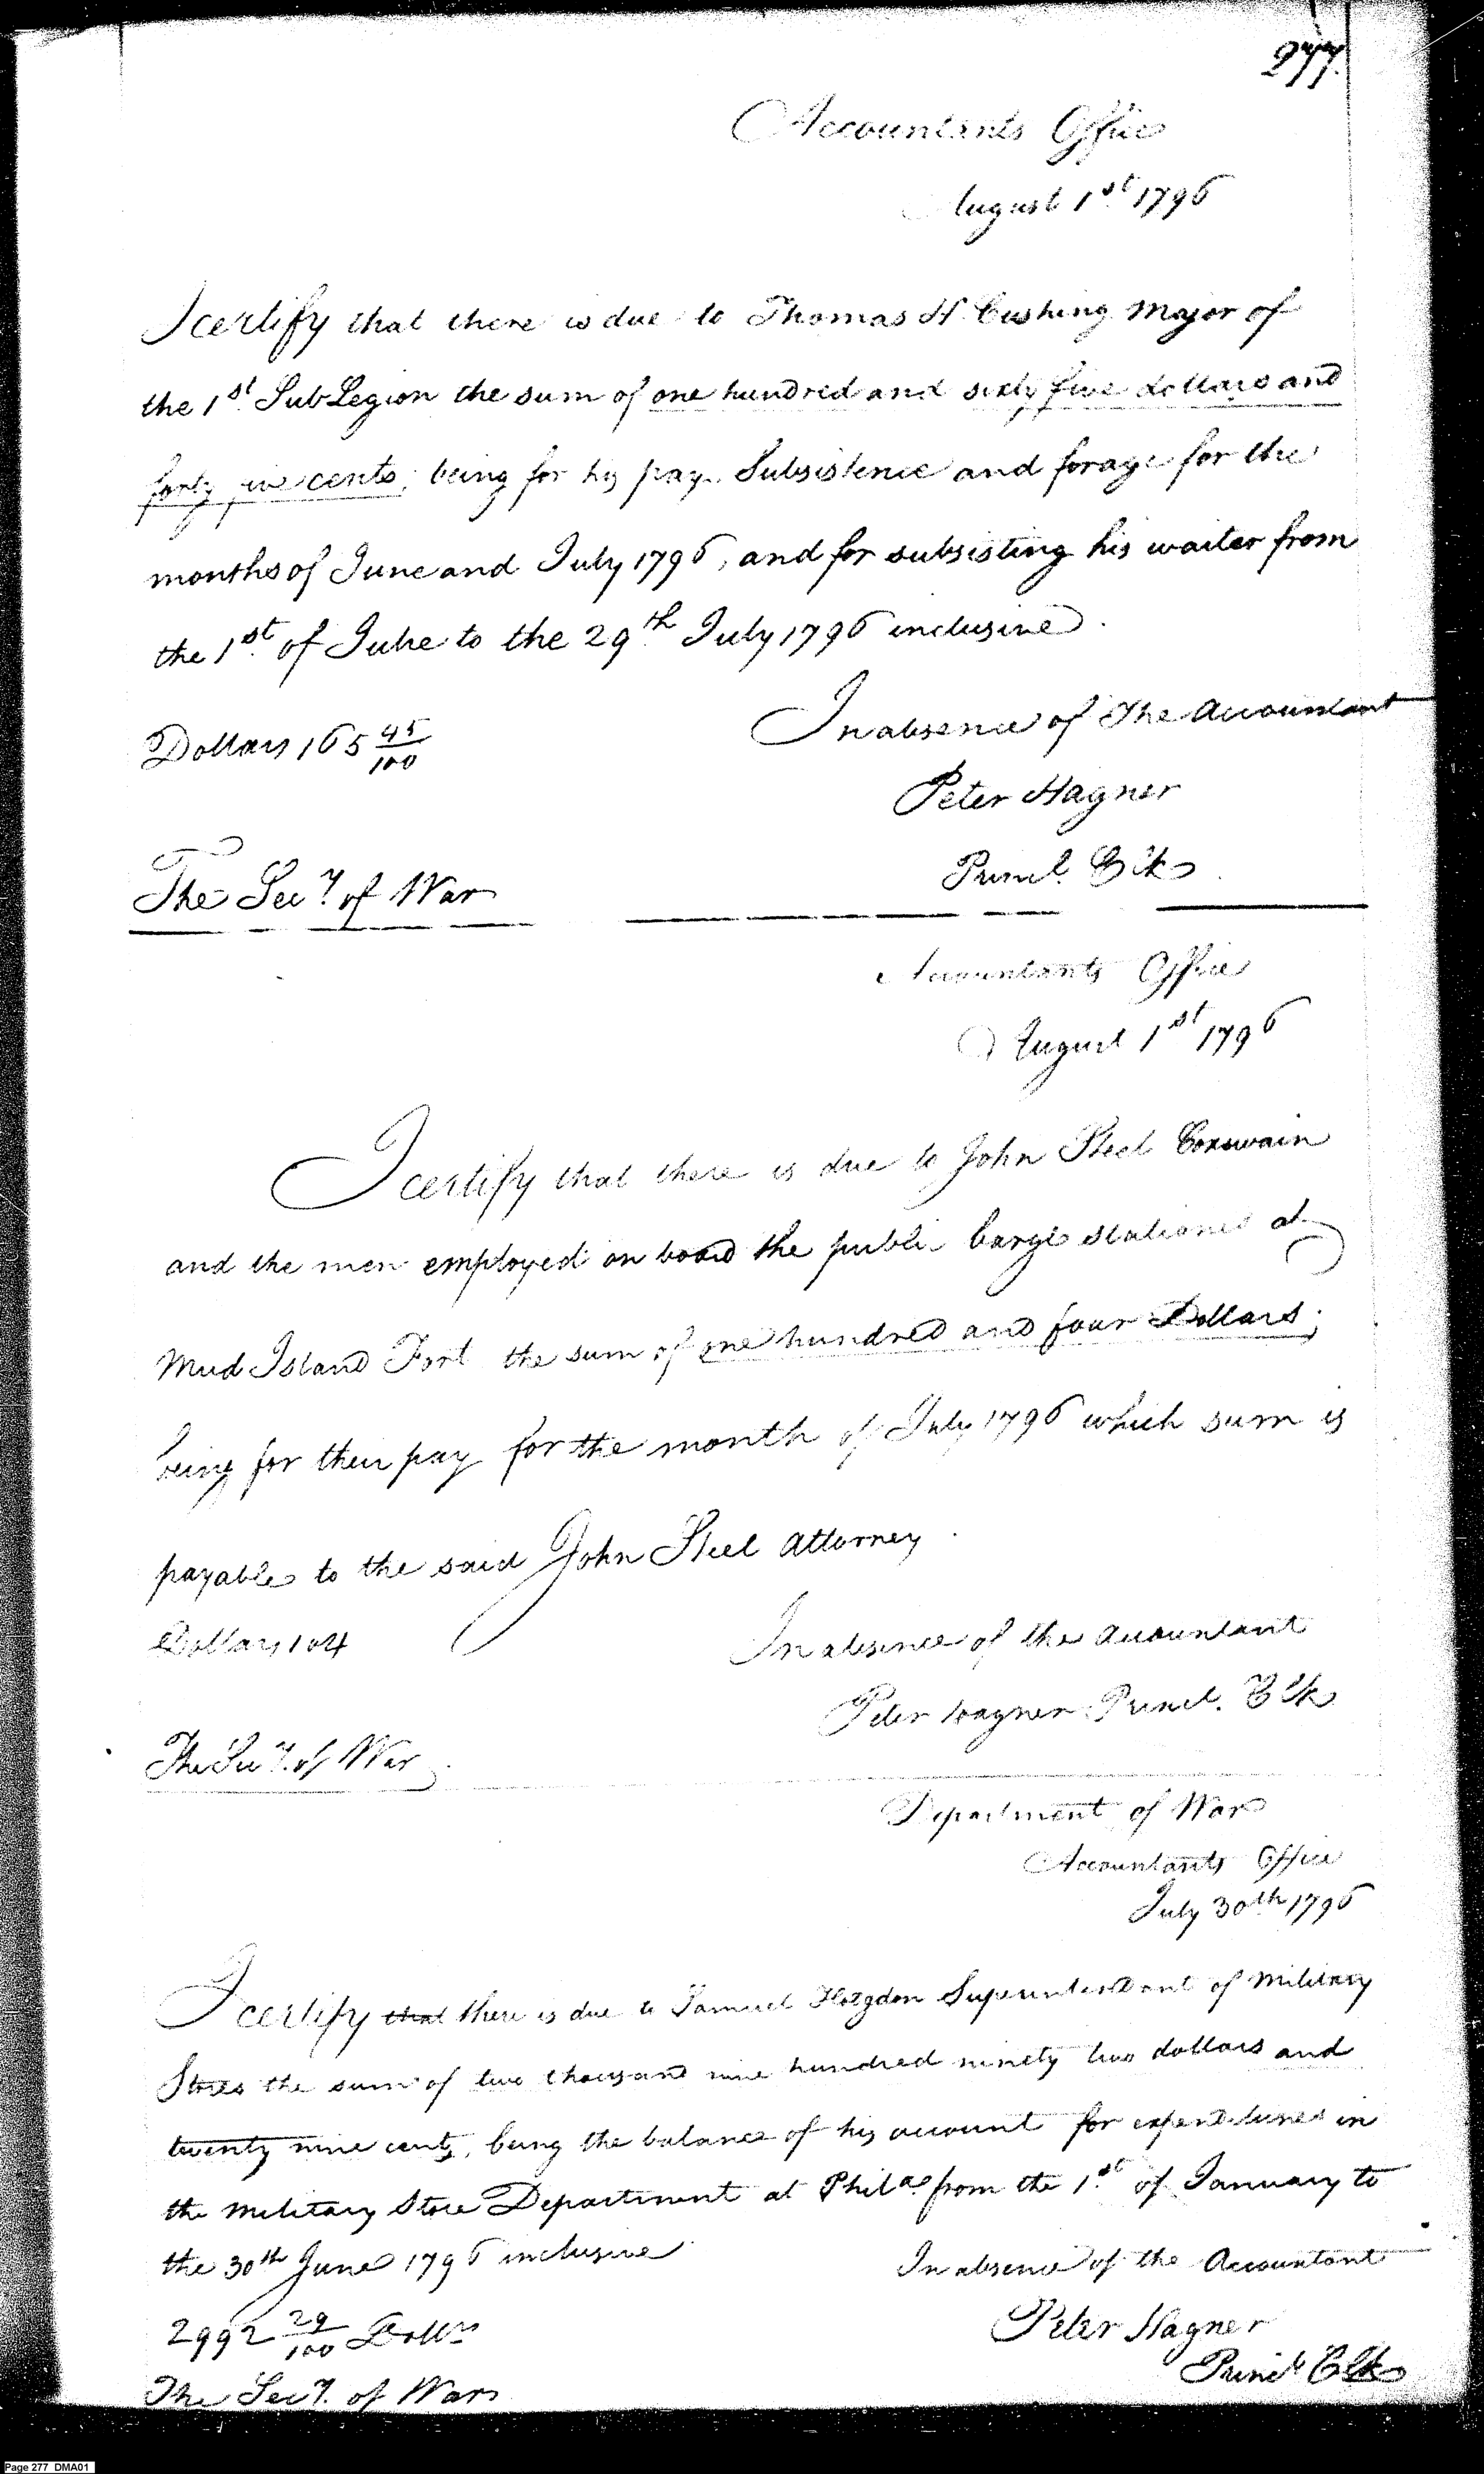 277.
Accountants Office
August 1st 1796
I certify that there is due to Thomas H Cushing Major of
the 1st SubLegion the sum of one hundred and sixty five dollars and
forty five cents, being for his pay, Subsistence and forage for the
months of June and July 1796, and for subsisting his waiter from
the 1st of June to the 29th July 1796 inclusive.
Dollars 165 45/100
In absence of The Accountant
Peter Hagner
Princl. Clk
The Secy. of War
Accountants Office
August 1st 1796
I certify that there is due to John Steel Coxswain
and the men employed on board the public barge stationed at
Mud Island Fort the sum of one hundred and four Dollars;
being for their pay for the month of July 1796 which sum is
payable to the said John Steel Attorney.
Dollars 104
In absence of the Accountant
Peter Hagner Princl. Clk
The Secy. of War
Department of War
Accountants Office
July 30th 1796
I certify that there is due to Samuel Hodgdon Superintendant of Military
Stores the sum of two thousand nine hundred ninety two dollars and
twenty nine cents, being the balance of his account for expenditures in
the Military Store Department at Phila. from the 1st of January to
the 30th June 1796 inclusive
In absence of the Accountant
2992 29/100 Dollrs
Peter Hagner
Princl Clk
The Secy. of War
Page 277 DMA01